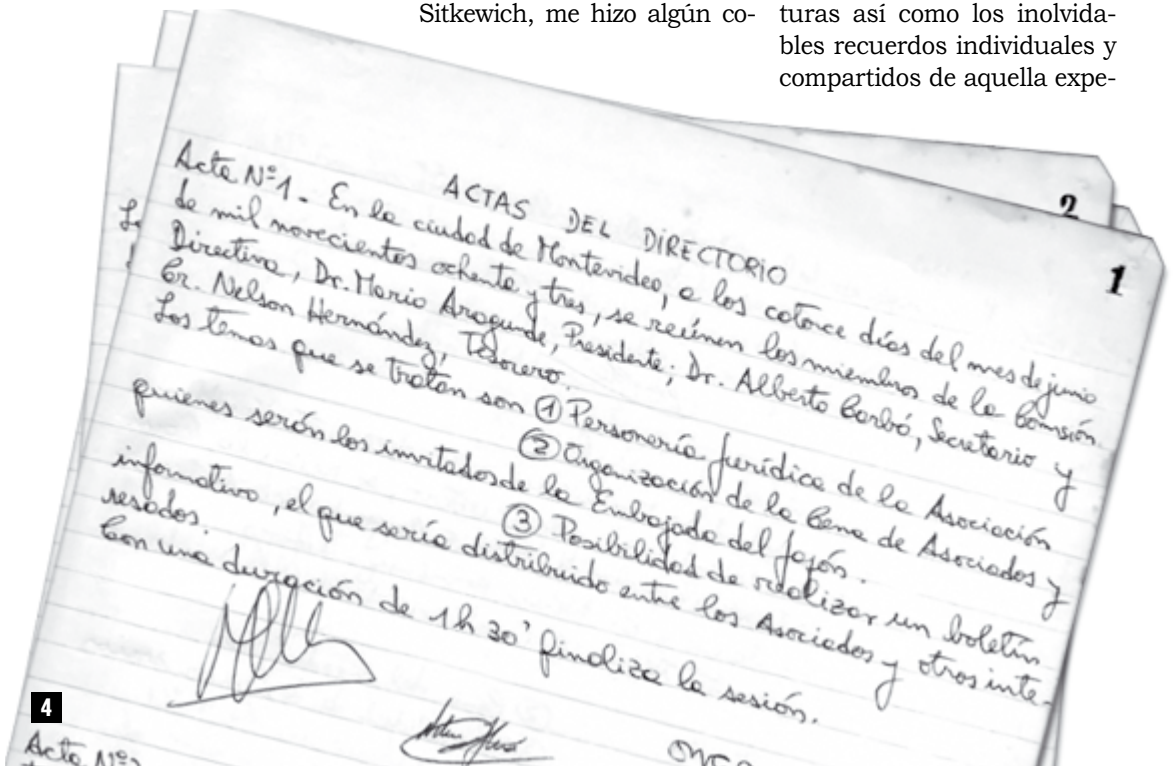 Sitkewich, me hizo algún co-
turas así como los inolvida-
bles recuerdos individuales y
compartidos de aquella expe-
2
1
ACTAS DEL DIRECTORIO
Acta Nº1 - En la ciudad de Montevideo, a los catorce días del mes de junio
de mil novecientos ochenta y tres, se reúnen los miembros de la Comisión
Directiva, Dr. Mario Aragunde, Presidente; Dr. Alberto Carbó, Secretario y
Cr. Nelson Hernández, Tesorero.
Los temas que se tratan son ① Personería jurídica de la Asociación
② Organización de la Cena de Asociados y
quienes serán los invitados de la Embajada del Japón.
③ Posibilidad de realizar un boletín
informativo, el que sería distribuido entre los Asociados y otros inte-
resados.
Con una duración de 1h 30' finaliza la sesión.
4
Acta Nº2